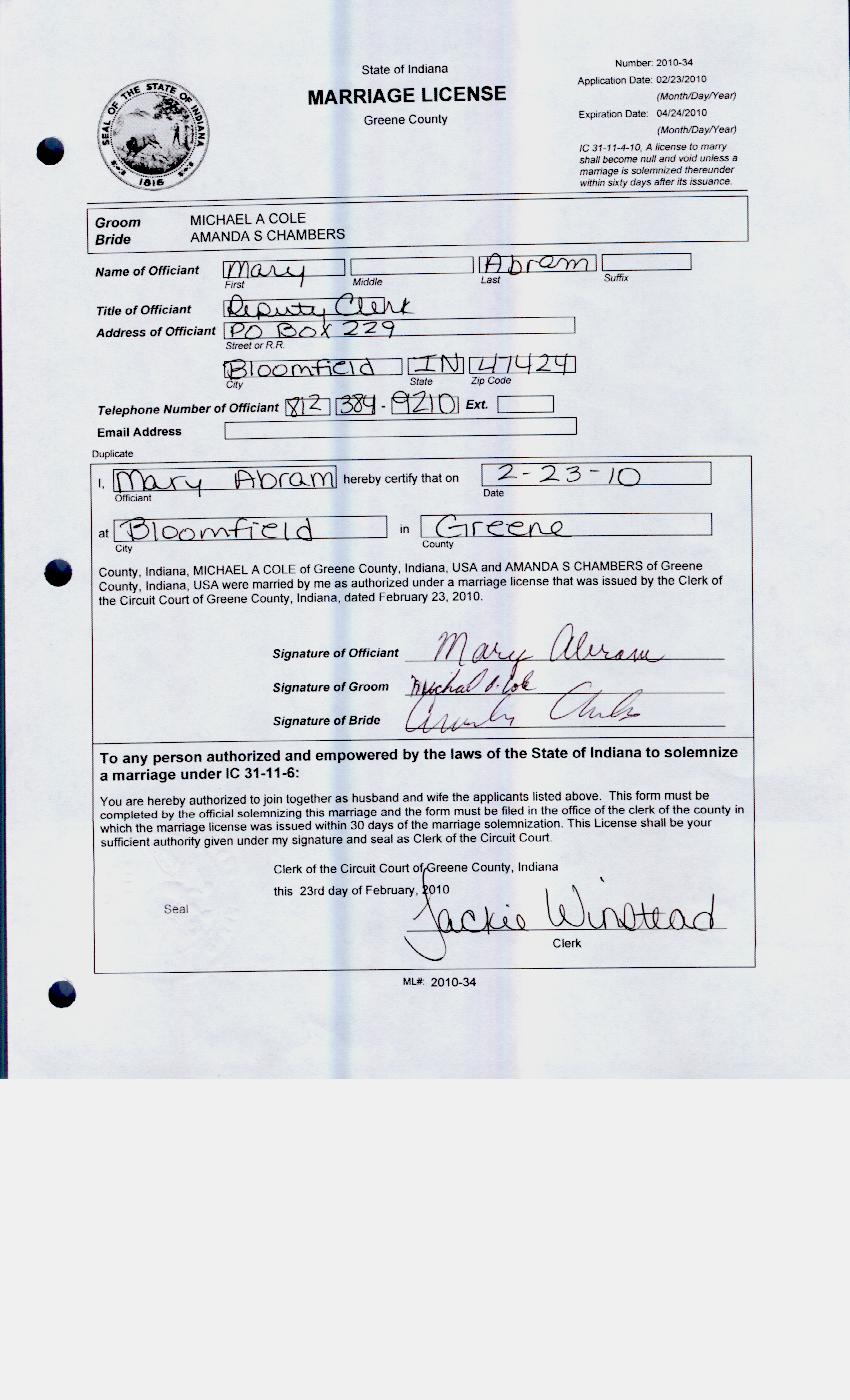 State of Indiana
MARRIAGE LICENSE
Greene County
Number: 2010-34
Application Date: 02/23/2010
(Month/Day/Year)
Expiration Date: 04/24/2010
(Month/Day/Year)
IC 31-11-4-10, A license to marry
shall become null and void unless a
marriage is solemnized thereunder
within sixty days after its issuance.
SEAL OF THE STATE OF INDIANA
1816
Groom MICHAEL A COLE
Bride AMANDA S CHAMBERS
Name of Officiant Mary Abram
First Middle Last Suffix
Title of Officiant Deputy Clerk
Address of Officiant PO BOX 229
Street or R.R.
Bloomfield IN 47424
City State Zip Code
Telephone Number of Officiant 812 384-9210 Ext.
Email Address
Duplicate
I, Mary Abram hereby certify that on 2-23-10
Officiant Date
at Bloomfield in Greene
City County
County, Indiana, MICHAEL A COLE of Greene County, Indiana, USA and AMANDA S CHAMBERS of Greene
County, Indiana, USA were married by me as authorized under a marriage license that was issued by the Clerk of
the Circuit Court of Greene County, Indiana, dated February 23, 2010.
Signature of Officiant Mary Abram
Signature of Groom Michael A. Cole
Signature of Bride
To any person authorized and empowered by the laws of the State of Indiana to solemnize
a marriage under IC 31-11-6:
You are hereby authorized to join together as husband and wife the applicants listed above. This form must be
completed by the official solemnizing this marriage and the form must be filed in the office of the clerk of the county in
which the marriage license was issued within 30 days of the marriage solemnization. This License shall be your
sufficient authority given under my signature and seal as Clerk of the Circuit Court.
Clerk of the Circuit Court of Greene County, Indiana
this 23rd day of February, 2010
Seal
Jackie Winstead
Clerk
ML#: 2010-34